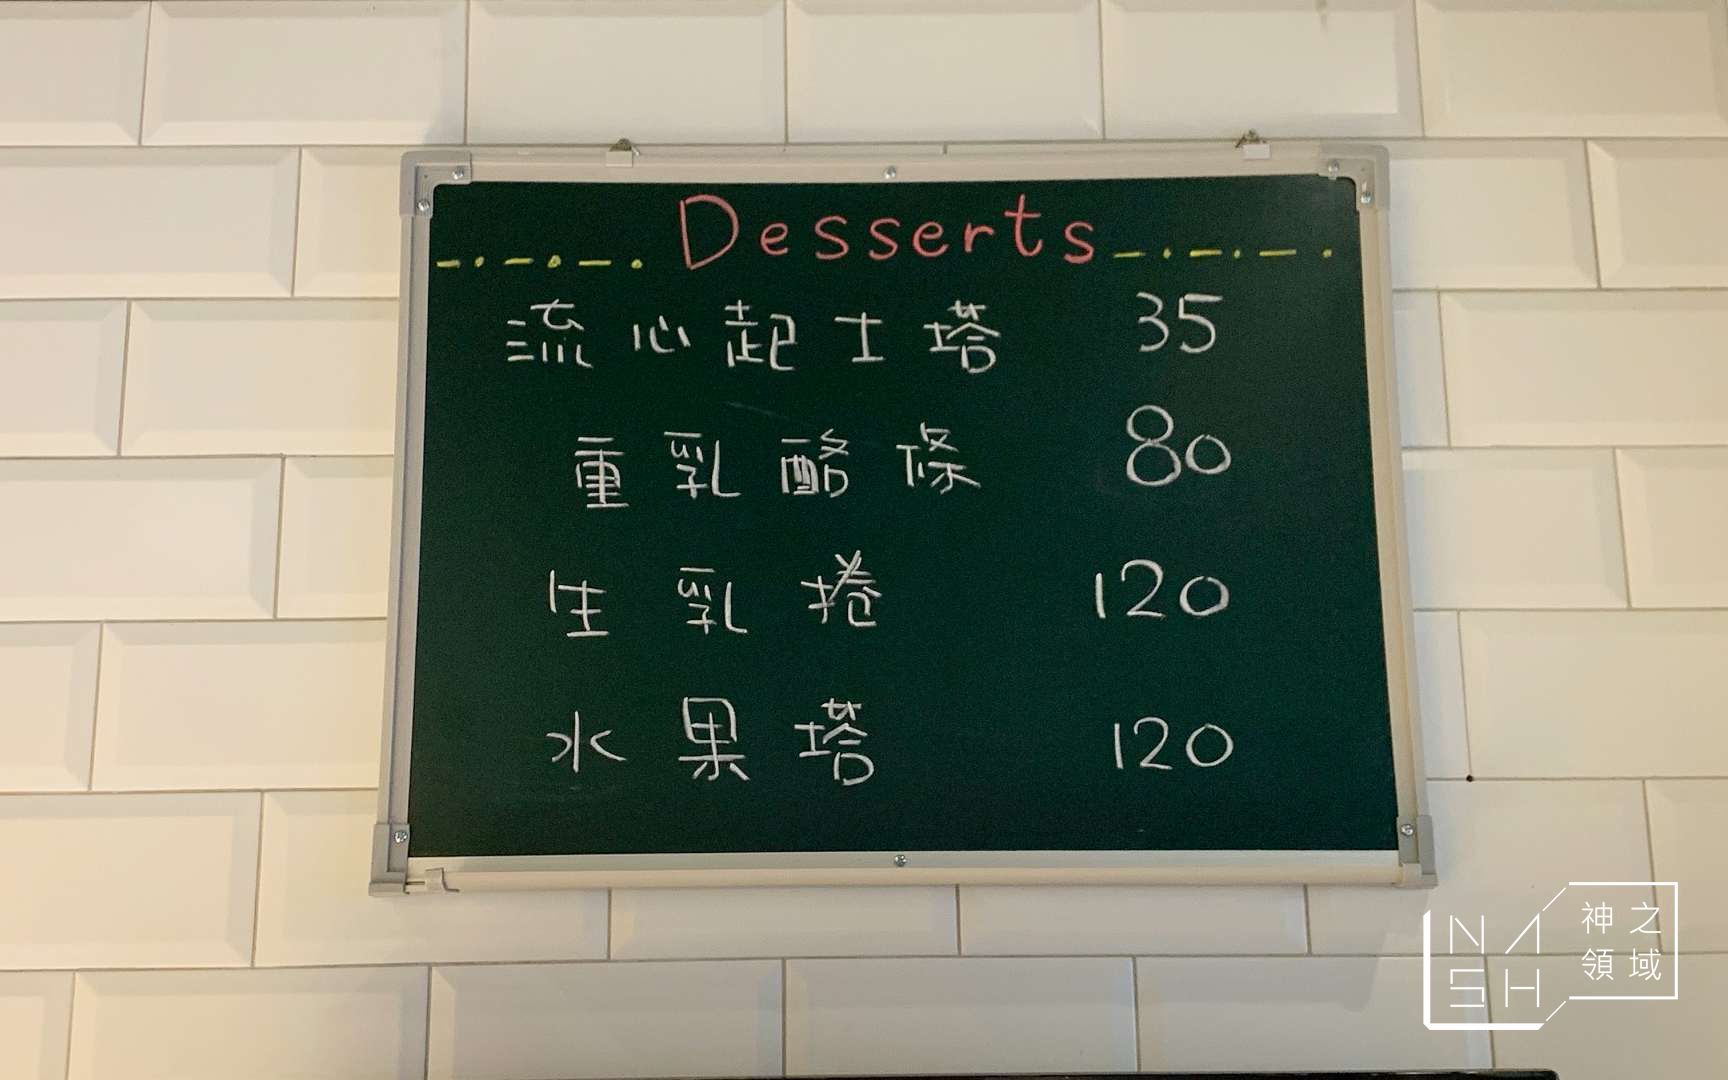 Desserts
流心起士塔 35
重乳酪條 80
生乳捲 120
水果塔 120
NASH 神之領域